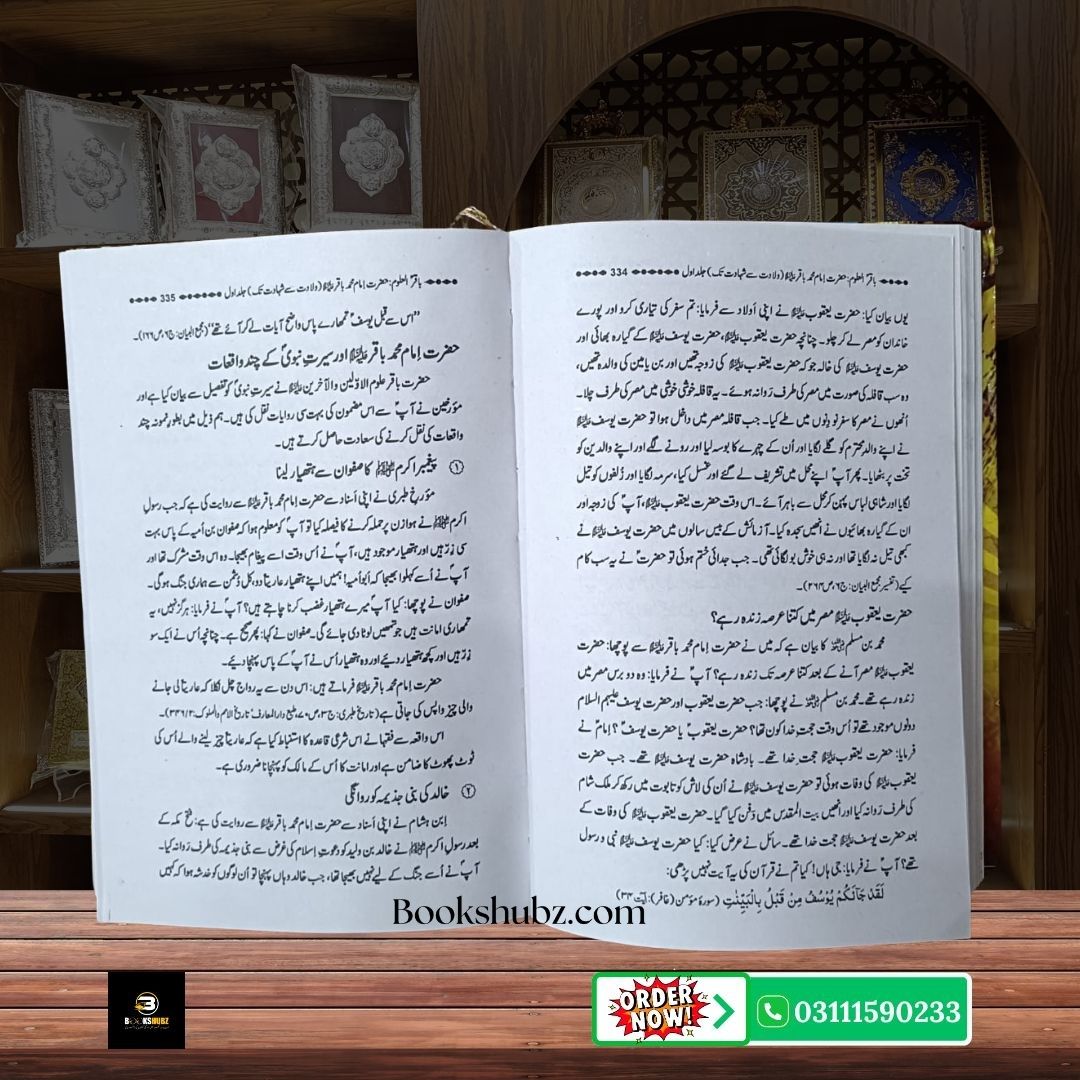 باقر العلوم: حضرت امام محمد باقر علیہ السلام (ولادت سے شہادت تک) جلد اول 334
یوں بیان کیا: حضرت یعقوب علیہ السلام نے اپنی اولاد سے فرمایا: تم سفر کی تیاری کرو اور پورے
خاندان کو مصر لے کر چلو۔ چنانچہ حضرت یعقوب علیہ السلام، حضرت یوسف علیہ السلام کے گیارہ بھائی اور
حضرت یوسف علیہ السلام کی خالہ جو کہ حضرت یعقوب علیہ السلام کی زوجہ تھیں اور بن یامین کی والدہ تھیں،
وہ سب قافلہ کی صورت میں مصر کی طرف روانہ ہوئے۔ یہ قافلہ خوشی خوشی مصر کی طرف چلا۔
اُنھوں نے مصر کا سفر نو دِنوں میں طے کیا۔ جب قافلہ مصر میں داخل ہوا تو حضرت یوسف علیہ السلام
نے اپنے والد محترم کو گلے لگایا اور اُن کے چہرے کا بوسہ لیا اور رونے لگے اور اپنے والدین کو
تخت پر بٹھایا۔ پھر آپؑ اپنے محل میں تشریف لے گئے اور غسل کیا، سرمہ لگایا اور زُلفوں کو تیل
لگایا اور شاہی لباس پہن کر محل سے باہر آئے۔ اس وقت حضرت یعقوب علیہ السلام، آپؑ کی زوجہ اور
ان کے گیارہ بھائیوں نے انھیں سجدہ کیا۔ آزمائش کے بیس سالوں میں حضرت یوسف علیہ السلام نے
کبھی تیل نہ لگایا تھا اور نہ ہی خوش بو لگائی تھی۔ جب جدائی ختم ہوئی تو حضرتؑ نے یہ سب کام
کیے (تفسیر مجمع البیان: ج۶، ص۲۶۴)۔
حضرت یعقوب علیہ السلام مصر میں کتنا عرصہ زندہ رہے؟
محمد بن مسلم کا بیان ہے کہ میں نے حضرت امام محمد باقر علیہ السلام سے پوچھا: حضرت
یعقوب علیہ السلام مصر آنے کے بعد کتنا عرصہ تک زندہ رہے؟ آپؑ نے فرمایا: وہ دو برس مصر میں
زندہ رہے تھے۔ محمد بن مسلم نے پوچھا: جب حضرت یعقوب اور حضرت یوسف علیہم السلام
دونوں موجود تھے تو اُس وقت حجت خدا کون تھا؟ حضرت یعقوبؑ یا حضرت یوسفؑ؟ امامؑ نے
فرمایا: حضرت یعقوب علیہ السلام حجت خدا تھے۔ بادشاہ حضرت یوسف علیہ السلام تھے۔ جب حضرت
یعقوب علیہ السلام کی وفات ہوئی تو حضرت یوسف علیہ السلام نے اُن کی لاش کو تابوت میں رکھ کر ملک شام
کی طرف روانہ کیا اور انھیں بیت المقدس میں دفن کیا گیا۔ حضرت یعقوب علیہ السلام کی وفات کے
بعد حضرت یوسف علیہ السلام حجت خدا تھے۔ سائل نے عرض کیا: کیا حضرت یوسف علیہ السلام نبی و رسول
تھے؟ آپؑ نے فرمایا: جی ہاں! کیا تم نے قرآن کی یہ آیت نہیں پڑھی:
لَقَدْ جَآئَكُمْ يُوْسُفُ مِنْ قَبْلُ بِالْبَيِّنٰتِ (سورۂ مؤمن (غافر): آیت ۳۴)
باقر العلوم: حضرت امام محمد باقر علیہ السلام (ولادت سے شہادت تک) جلد اول 335
”اس سے قبل یوسفؑ تمھارے پاس واضح آیات لے کر آئے تھے“ (مجمع البیان: ج۶، ص۲۶۶)۔
حضرت اِمام محمد باقر علیہ السلام اور سیرتِ نبویؐ کے چند واقعات
حضرت باقر علوم الاوّلین والآخرین علیہ السلام نے سیرتِ نبویؐ کو تفصیل سے بیان کیا ہے اور
مؤرخین نے آپؑ سے اس مضمون کی بہت سی روایات نقل کی ہیں۔ ہم ذیل میں بطور نمونہ چند
واقعات کی نقل کرنے کی سعادت حاصل کرتے ہیں۔
① پیغمبر اکرم ﷺ کا صفوان سے ہتھیار لینا
مؤرخ طبری نے اپنی اَسناد سے حضرت اِمام محمد باقر علیہ السلام سے روایت کی ہے کہ جب رسولِ
اکرم ﷺ نے ہوازن پر حملہ کرنے کا فیصلہ کیا تو آپؐ کو معلوم ہوا کہ صفوان بن اُمیہ کے پاس بہت
سی زرہیں اور ہتھیار موجود ہیں، آپؐ نے اُس وقت اسے پیغام بھیجا۔ وہ اس وقت مشرک تھا اور
آپؐ نے اُسے کہلوا بھیجا کہ اُبواُمیہ! ہمیں اپنے ہتھیار عاریتاً دو، کل دُشمن سے ہماری جنگ ہوگی۔
صفوان نے پوچھا: کیا آپؐ میرے ہتھیار غضب کرنا چاہتے ہیں؟ آپؐ نے فرمایا: ہرگز نہیں، یہ
تمھاری امانت ہیں جو تمھیں لوٹا دی جائے گی۔ صفوان نے کہا: پھر صحیح ہے۔ چنانچہ اُس نے ایک سو
زرہیں اور کچھ ہتھیار دیئے اور وہ ہتھیار اُس نے آپؐ کے پاس پہنچا دیئے۔
حضرت اِمام محمد باقر علیہ السلام فرماتے ہیں: اس دن سے یہ رواج چل نکلا کہ عاریتاً لی جانے
والی چیز واپس کی جاتی ہے (تاریخ طبری: ج۳، ص۷۰، طبع دار المعارف؛ تاریخ الامم والملوک: ۳۴۶/۲)۔
اس واقعہ سے فقہا نے اس شرعی قاعدہ کا استنباط کیا ہے کہ عاریتاً چیز لینے والے اُس کی
ٹوٹ پھوٹ کا ضامن ہے اور امانت کا اُس کے مالک کو پہچانا ضروری ہے۔
② خالد کی بنی جذیمہ کو روانگی
اِبن ہشام نے اپنی اَسناد سے حضرت اِمام محمد باقر علیہ السلام سے روایت کی ہے: فتح مکہ کے
بعد رسولِ اکرم ﷺ نے خالد بن ولید کو دعوتِ اِسلام کی غرض سے بنی جذیمہ کی طرف روانہ کیا۔
آپؐ نے اُسے جنگ کے لیے نہیں بھیجا تھا، جب خالد وہاں پہنچا تو اُن لوگوں کو خدشہ ہوا کہ کہیں
Bookshubz.com
BOOKSHUBZ
ORDER NOW!
03111590233